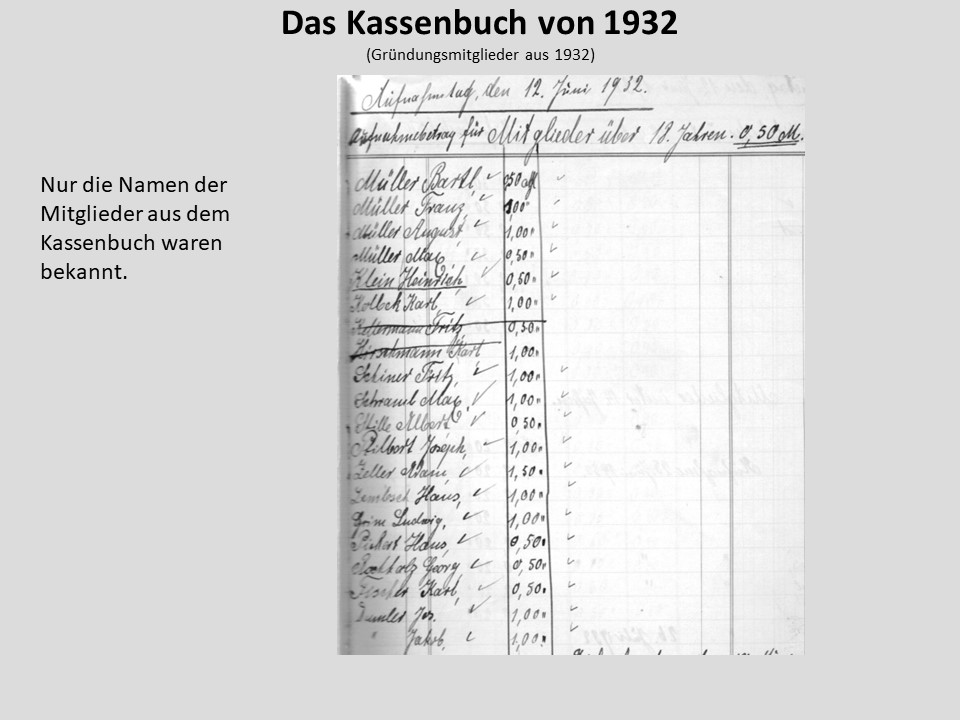 Das Kassenbuch von 1932
(Gründungsmitglieder aus 1932)
Nur die Namen der
Mitglieder aus dem
Kassenbuch waren
bekannt.
Aufnahmstag, den 12. Juni 1932.
Aufnahmebetrag für Mitglieder über 18. Jahren. 0,50 M.
Müller Bartl, 0,50 M
Müller Franz, 1,00 "
Müller August, 1,00 "
Müller Max, 0,50 "
Klein Heinrich, 0,50 "
Kolbek Karl, 1,00 "
Kellermann Fritz 0,50 "
Hirschmann Karl 1,00 "
Schiner Fritz, 1,00 "
Schraml Max, 1,00 "
Hille Albert 0,50 "
Joseph, 1,00 "
Zeller Adam, 1,50 "
Hans, 1,00 "
Grim Ludwig, 1,00 "
Hans, 0,50 "
Georg 0,50 "
Fischer Karl, 0,50 "
Jos. 1,00 "
" Jakob, 1,00 "